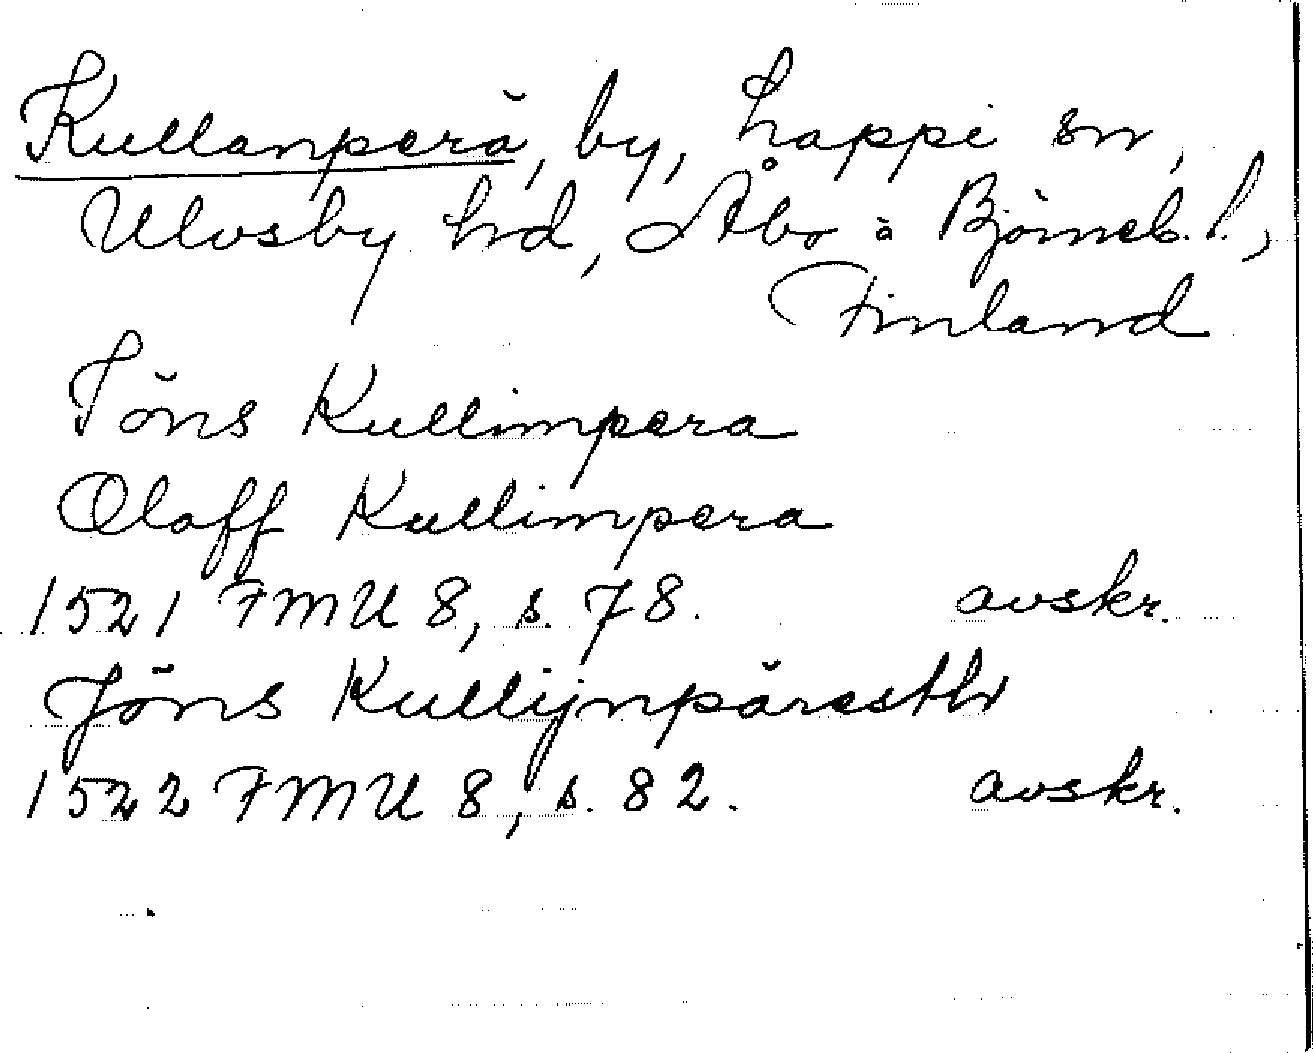 Kullanperä, by, Lappi sn,
Ulvsby hd, Åbo o Björneb. l.,
Finland
Jöns Kullimpera
Oloff Kullimpera
1521 FMU 8, s. 78. avskr.
Jöns Kullijnpäresth
1522 FMU 8, s. 82. avskr.